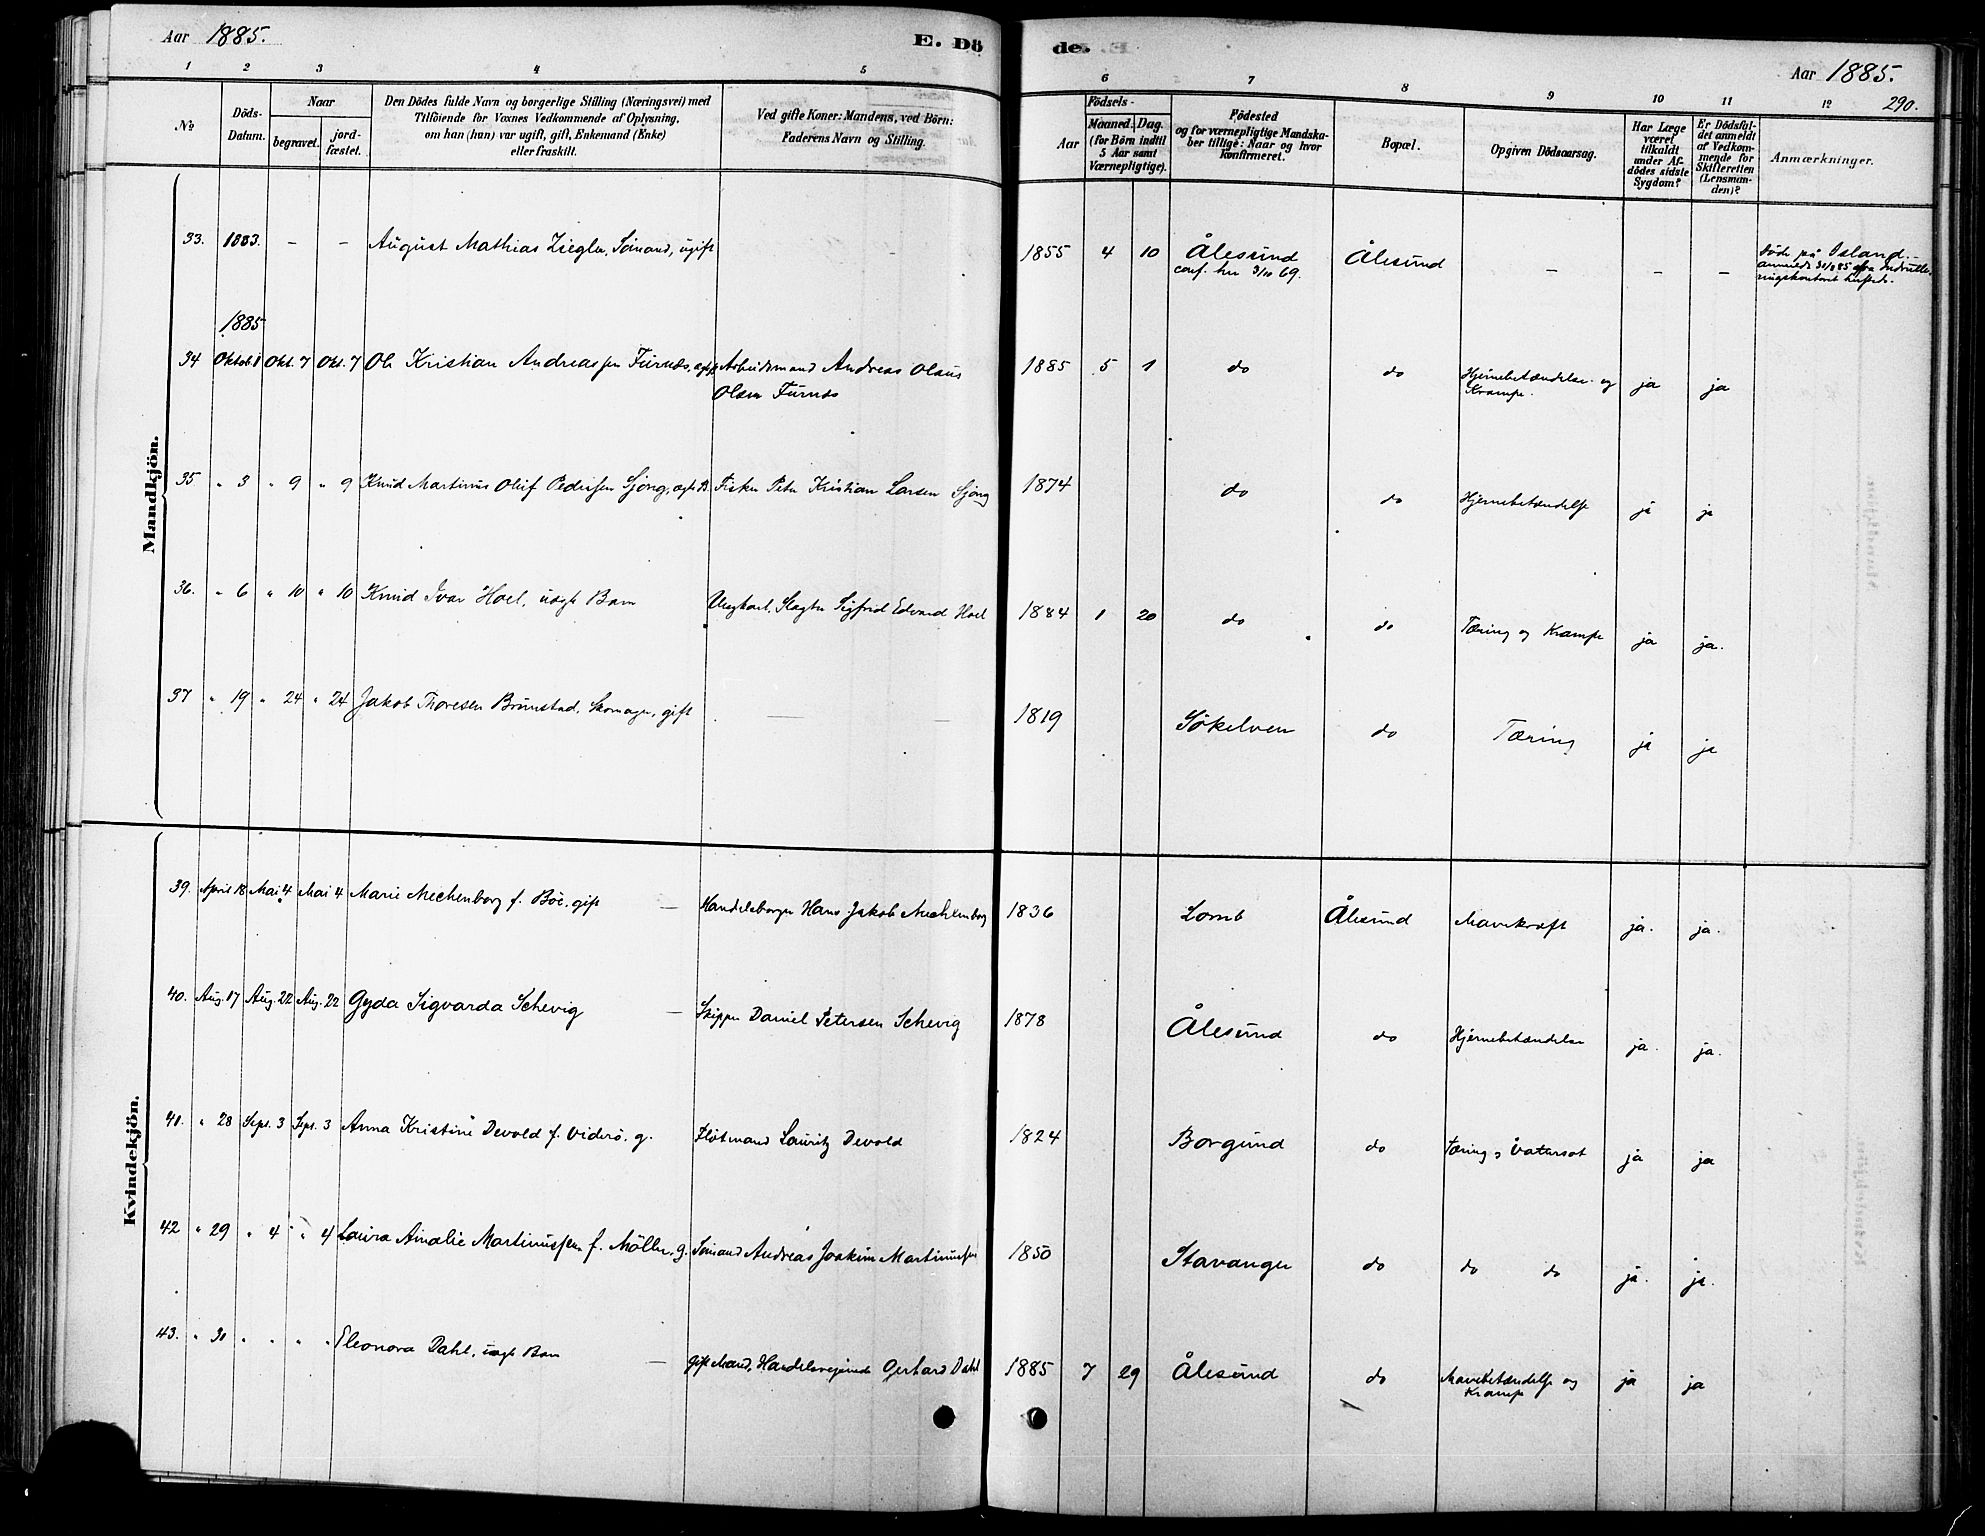 Aar 1885.
E. Dö
de.
Aar 1885.
290.
1 2 3 4 5 6 7 8 9 10 11 12
No
Döds-Datum.
Naar
begravet.
jord-fæstet.
Den Dödes fulde Navn og borgerlige Stilling (Næringsvei) med
Tilföiende for Voxnes Vedkommende af Oplysning,
om han (hun) var ugift, gift, Enkemand (Enke)
eller fraskilt.
Ved gifte Koner: Mandens, ved Börn:
Faderens Navn og Stilling.
Födsels-
Aar
Maaned. Dag.
(for Börn indtil
5 Aar samt
Værnepligtige).
Födested
og for værnepligtige Mandska-
ber tillige: Naar og hvor
konfirmeret.
Bopæl.
Opgiven Dödsaarsag.
Har Læge
været
tilkaldt
under Af-
dödes sidste
Sygdom?
Er Dödsfal-
det anmeldt
af Vedkom-
mende for
Skifteretten
(Lensman-
den)?
Anmærkninger.
Mandkjön.
33. 1883. - - August Mathias Ziegler, Sömand, ugift 1855 4 10 Ålesund Ålesund - - - Døde på Island.
conf. her 3/10 69.
1885
34 Oktob 1 Okt. 7 Okt. 7 Ole Kristian Andreassen Furnæs, Arbeidsmand Andreas Olaus 1885 5 1 do do Hjernebetændelse og ja ja
Olsen Furnæs Krampe.
35 " 3 " 9 " 9 Knud Martinus Oluf Pedersen Sjong, ægte B. Fisker Peter Kristian Larsen Sjong 1874 do do Hjernebetændelse ja ja
36. " 6 " 10 " 10 Knud Ivar Hoel, uægte Barn Ungkarl, Slagter Sigfrid Edvard Hoel 1884 1 20 do do Tæring og Krampe ja ja.
37 " 19 " 24 " 24 Jakob Thoresen Brunstad, Skomager, gift - - 1819 Sökelven do Tæring ja ja
Kvindekjön.
39. April 18 Mai 4 Mai 4 Marie Mechenborg f. Böe. gift - Handelsborger Hans Jakob Mechlenborg 1836 Lomb Ålesund Mavekræft ja. ja.
40. Aug. 17 Aug. 22 Aug. 22 Gyda Sigvarda Schevig - Skipper Daniel Petersen Schevig 1878 Ålesund do Hjernebetændelse ja. ja.
41. " 28 Sept. 3 Sept. 3 Anna Kristine Devold f. Viderö. g. Flötmand Lauritz Devold 1824 Borgund do Tæring og Vatersot ja ja
42 " 29 " 4 " 4 Laura Amalie Martinussen f. Möller. g. Sömand Andreas Joakim Martinussen 1850 Stavanger do do do ja. ja.
43. " 30 " " " " Eleonora Dahl, uægte Barn - gift Mand, Gerhard Dahl 1885 7 29 Ålesund do Mavebetændelse og ja ja
Krampe